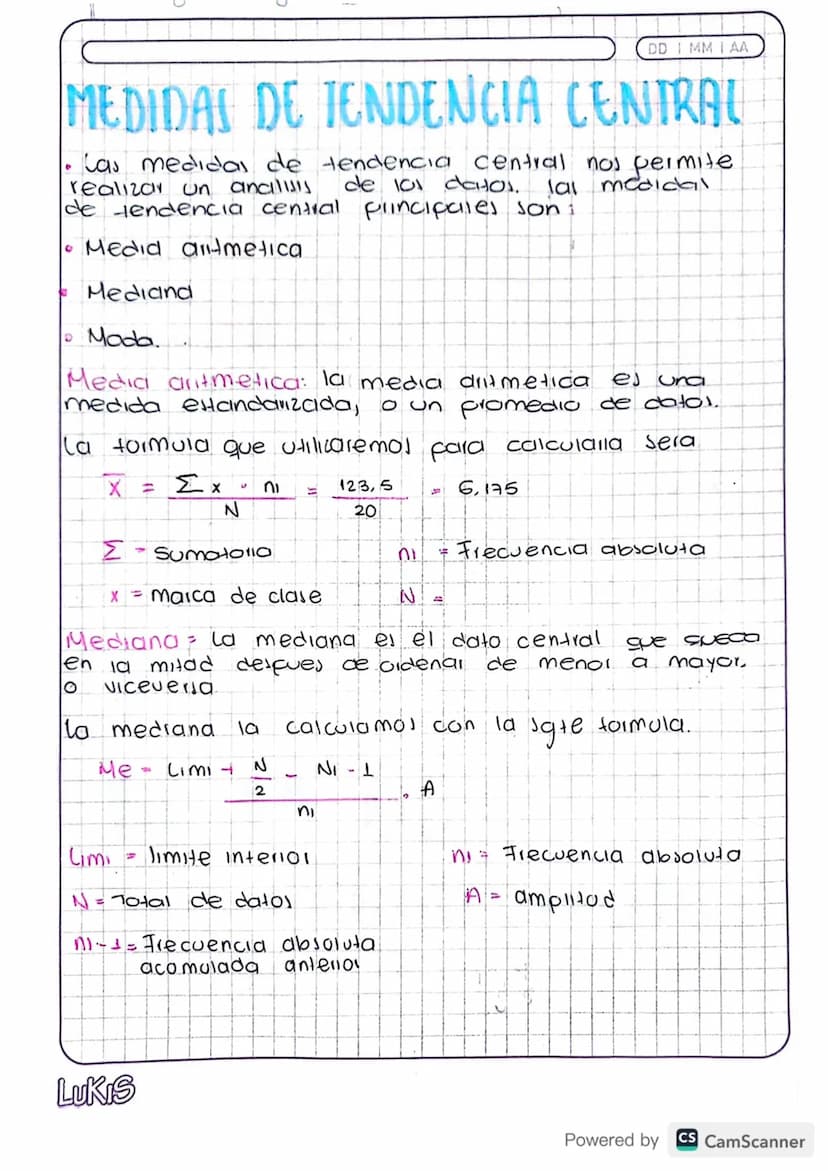 DD | MM | AA
MEDIDAS DE TENDENCIA CENTRAL
• Las medidas de tendencia central nos permite
realizar un analisis de los datos. las medidas
de tendencia central principales son:
• Media aritmetica
• Mediana
• Moda.
Media aritmetica: la media aritmetica es una
medida estandarizada, o un promedio de datos.
La formula que utilizaremos para calcularla sera
X̅ = Σx · ni / N = 123,5 / 20 = 6,175
Σ = Sumatorio ni = Frecuencia absoluta
x = marca de clase N =
Mediana = La mediana es el dato central que queda
en la mitad despues de ordenar de menor a mayor.
o viceversa
La mediana la calculamos con la sgte formula.
Me = Limi + N/2 - Ni - 1 / ni · A
Limi = limite inferior ni = Frecuencia absoluta
N = Total de datos A = amplitud
ni-1 = Frecuencia absoluta
acomulada anterior
LUKIS
Powered by CS CamScanner